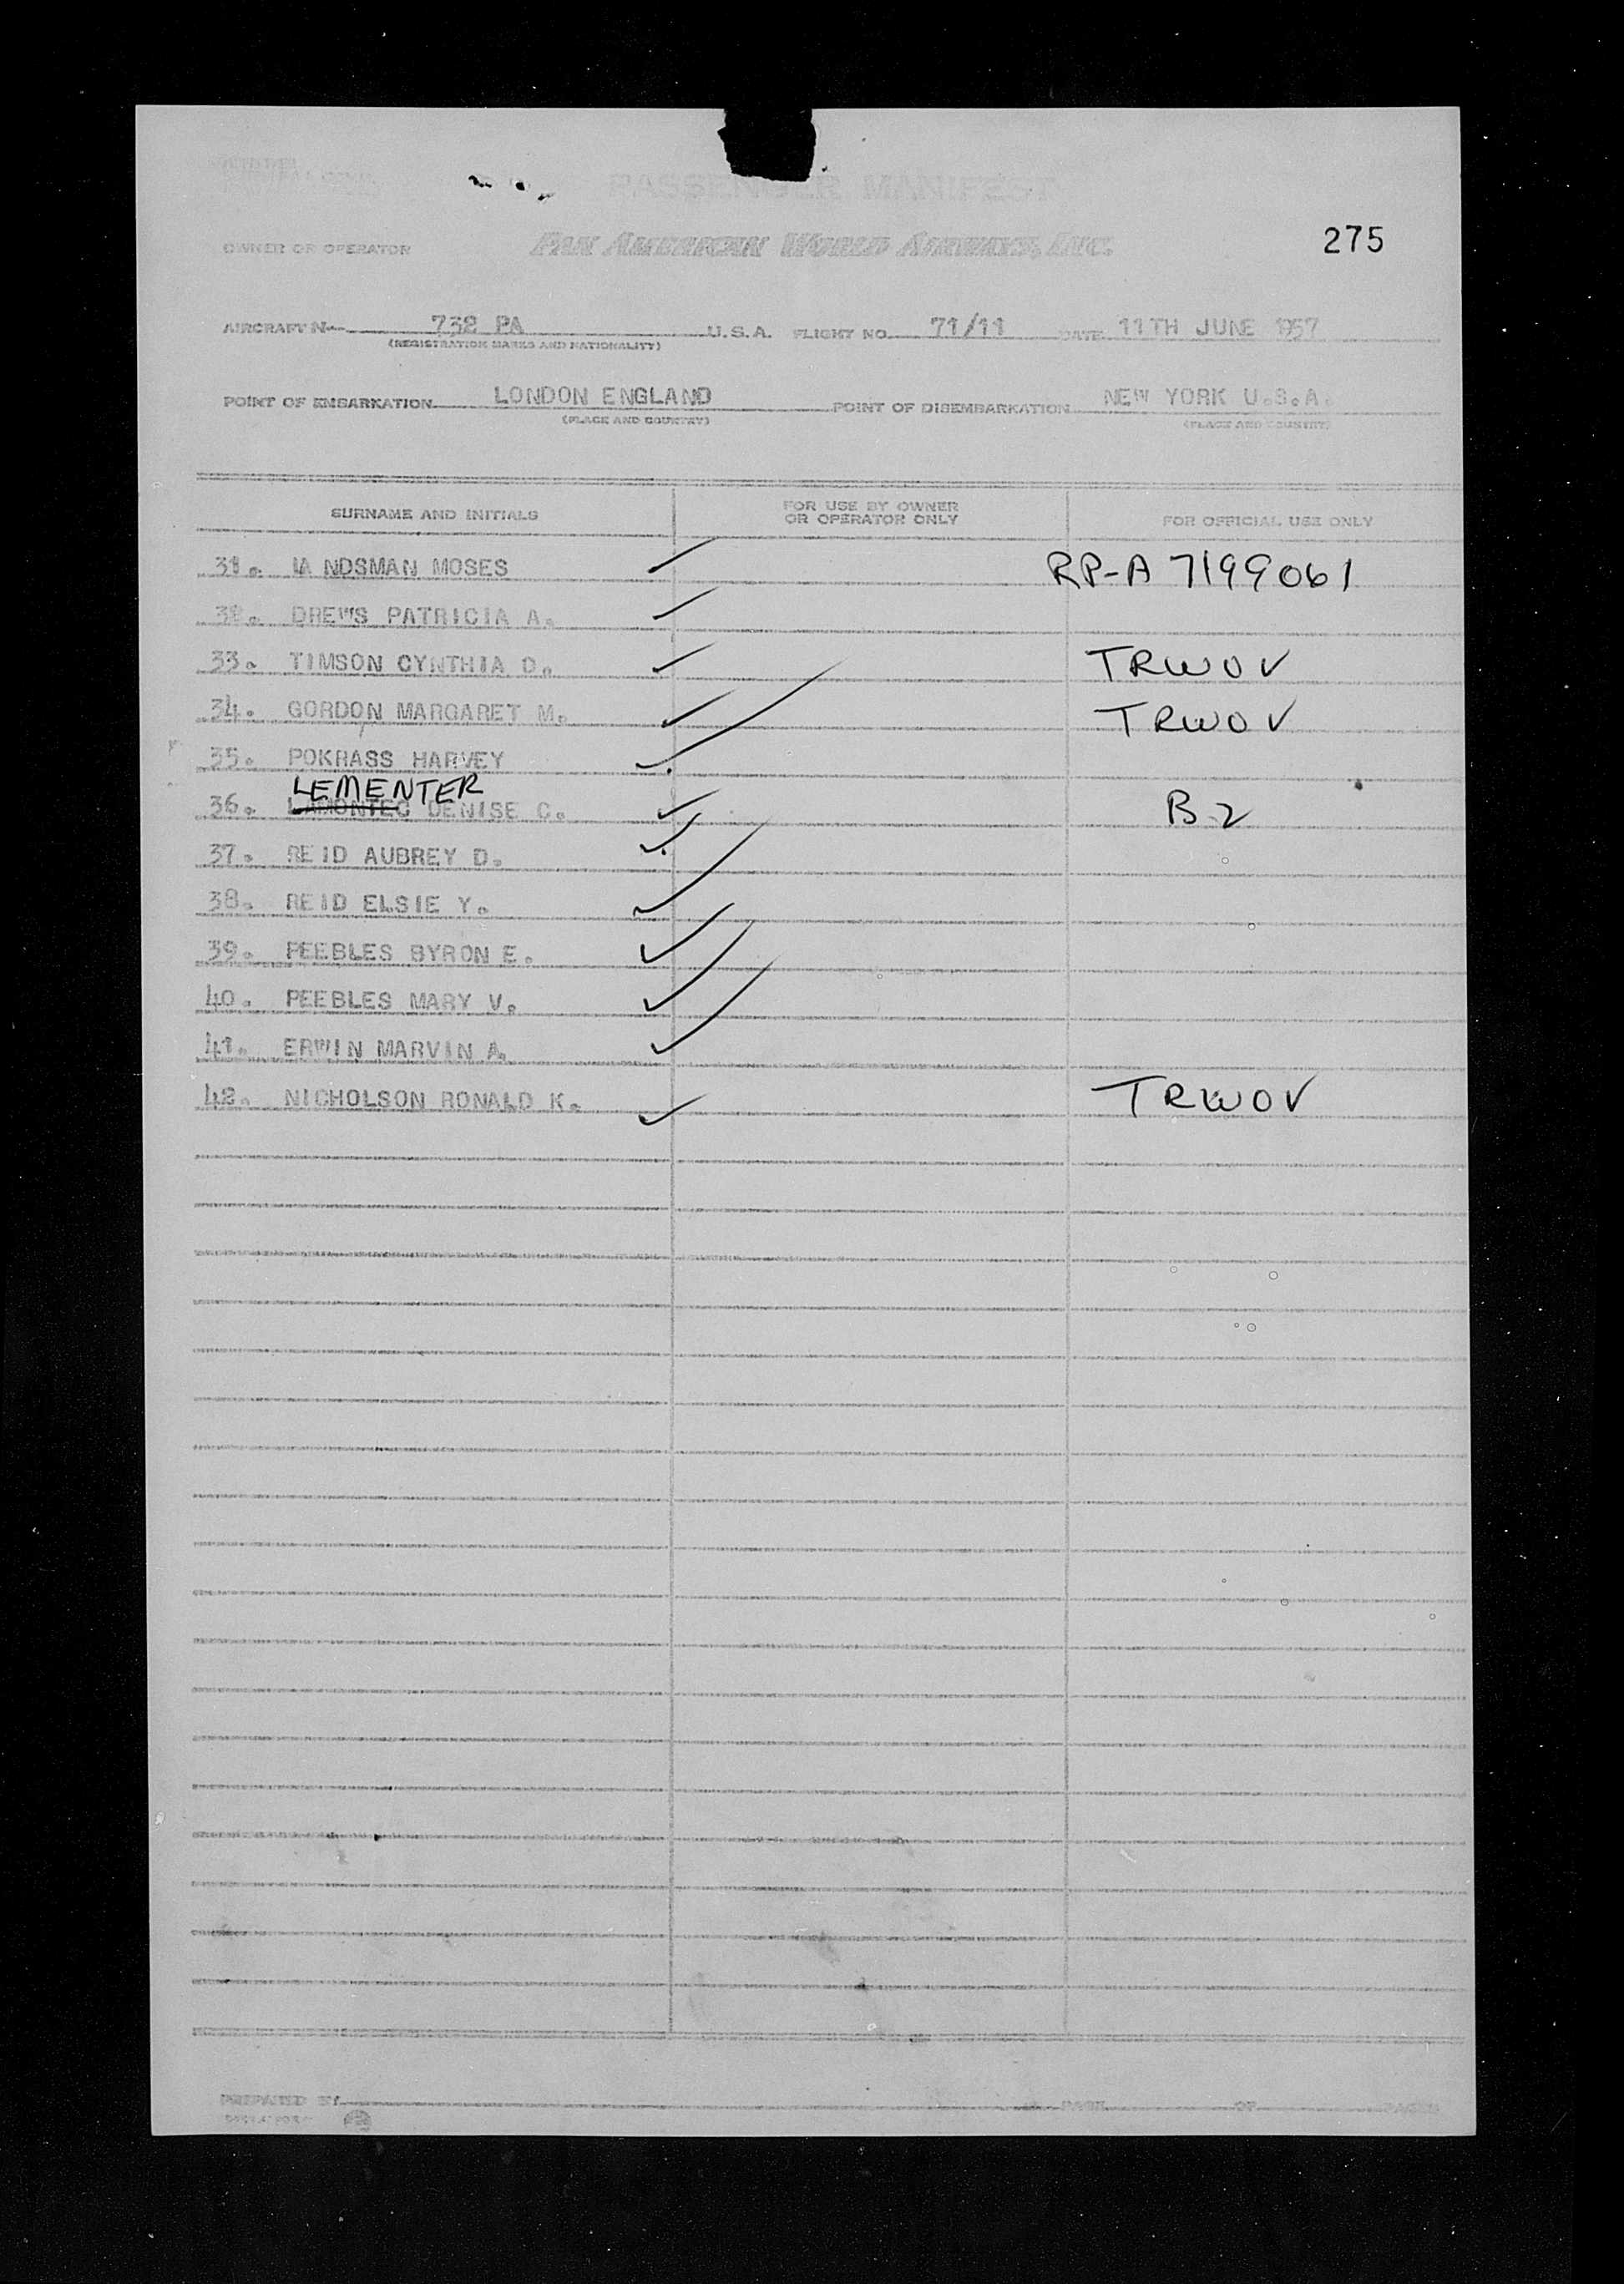 PASSENGER MANIFEST
OWNER OR OPERATOR PAN AMERICAN WORLD AIRWAYS, INC. 275
AIRCRAFT N 738 PA U.S.A. FLIGHT NO. 71/11 DATE 11TH JUNE 1957
(REGISTRATION MARKS AND NATIONALITY)
POINT OF EMBARKATION LONDON ENGLAND POINT OF DISEMBARKATION NEW YORK U.S.A.
(PLACE AND COUNTRY) (PLACE AND COUNTRY)
SURNAME AND INITIALS FOR USE BY OWNER OR OPERATOR ONLY FOR OFFICIAL USE ONLY
31. LANDSMAN MOSES ✓ RP-A 7199061
32. DREWS PATRICIA A. ✓
33. TIMSON CYNTHIA D. ✓ TRWOV
34. GORDON MARGARET M. ✓ TRWOV
35. POKRASS HARVEY ✓
LEMENTER
36. LAMONTEC DENISE C. ✓ B-2
37. REID AUBREY D. ✓
38. REID ELSIE Y. ✓
39. PEEBLES BYRON E. ✓
40. PEEBLES MARY V. ✓
41. ERWIN MARVIN A. ✓
42. NICHOLSON RONALD K. ✓ TRWOV
PREPARED BY PAGE OF PAGES